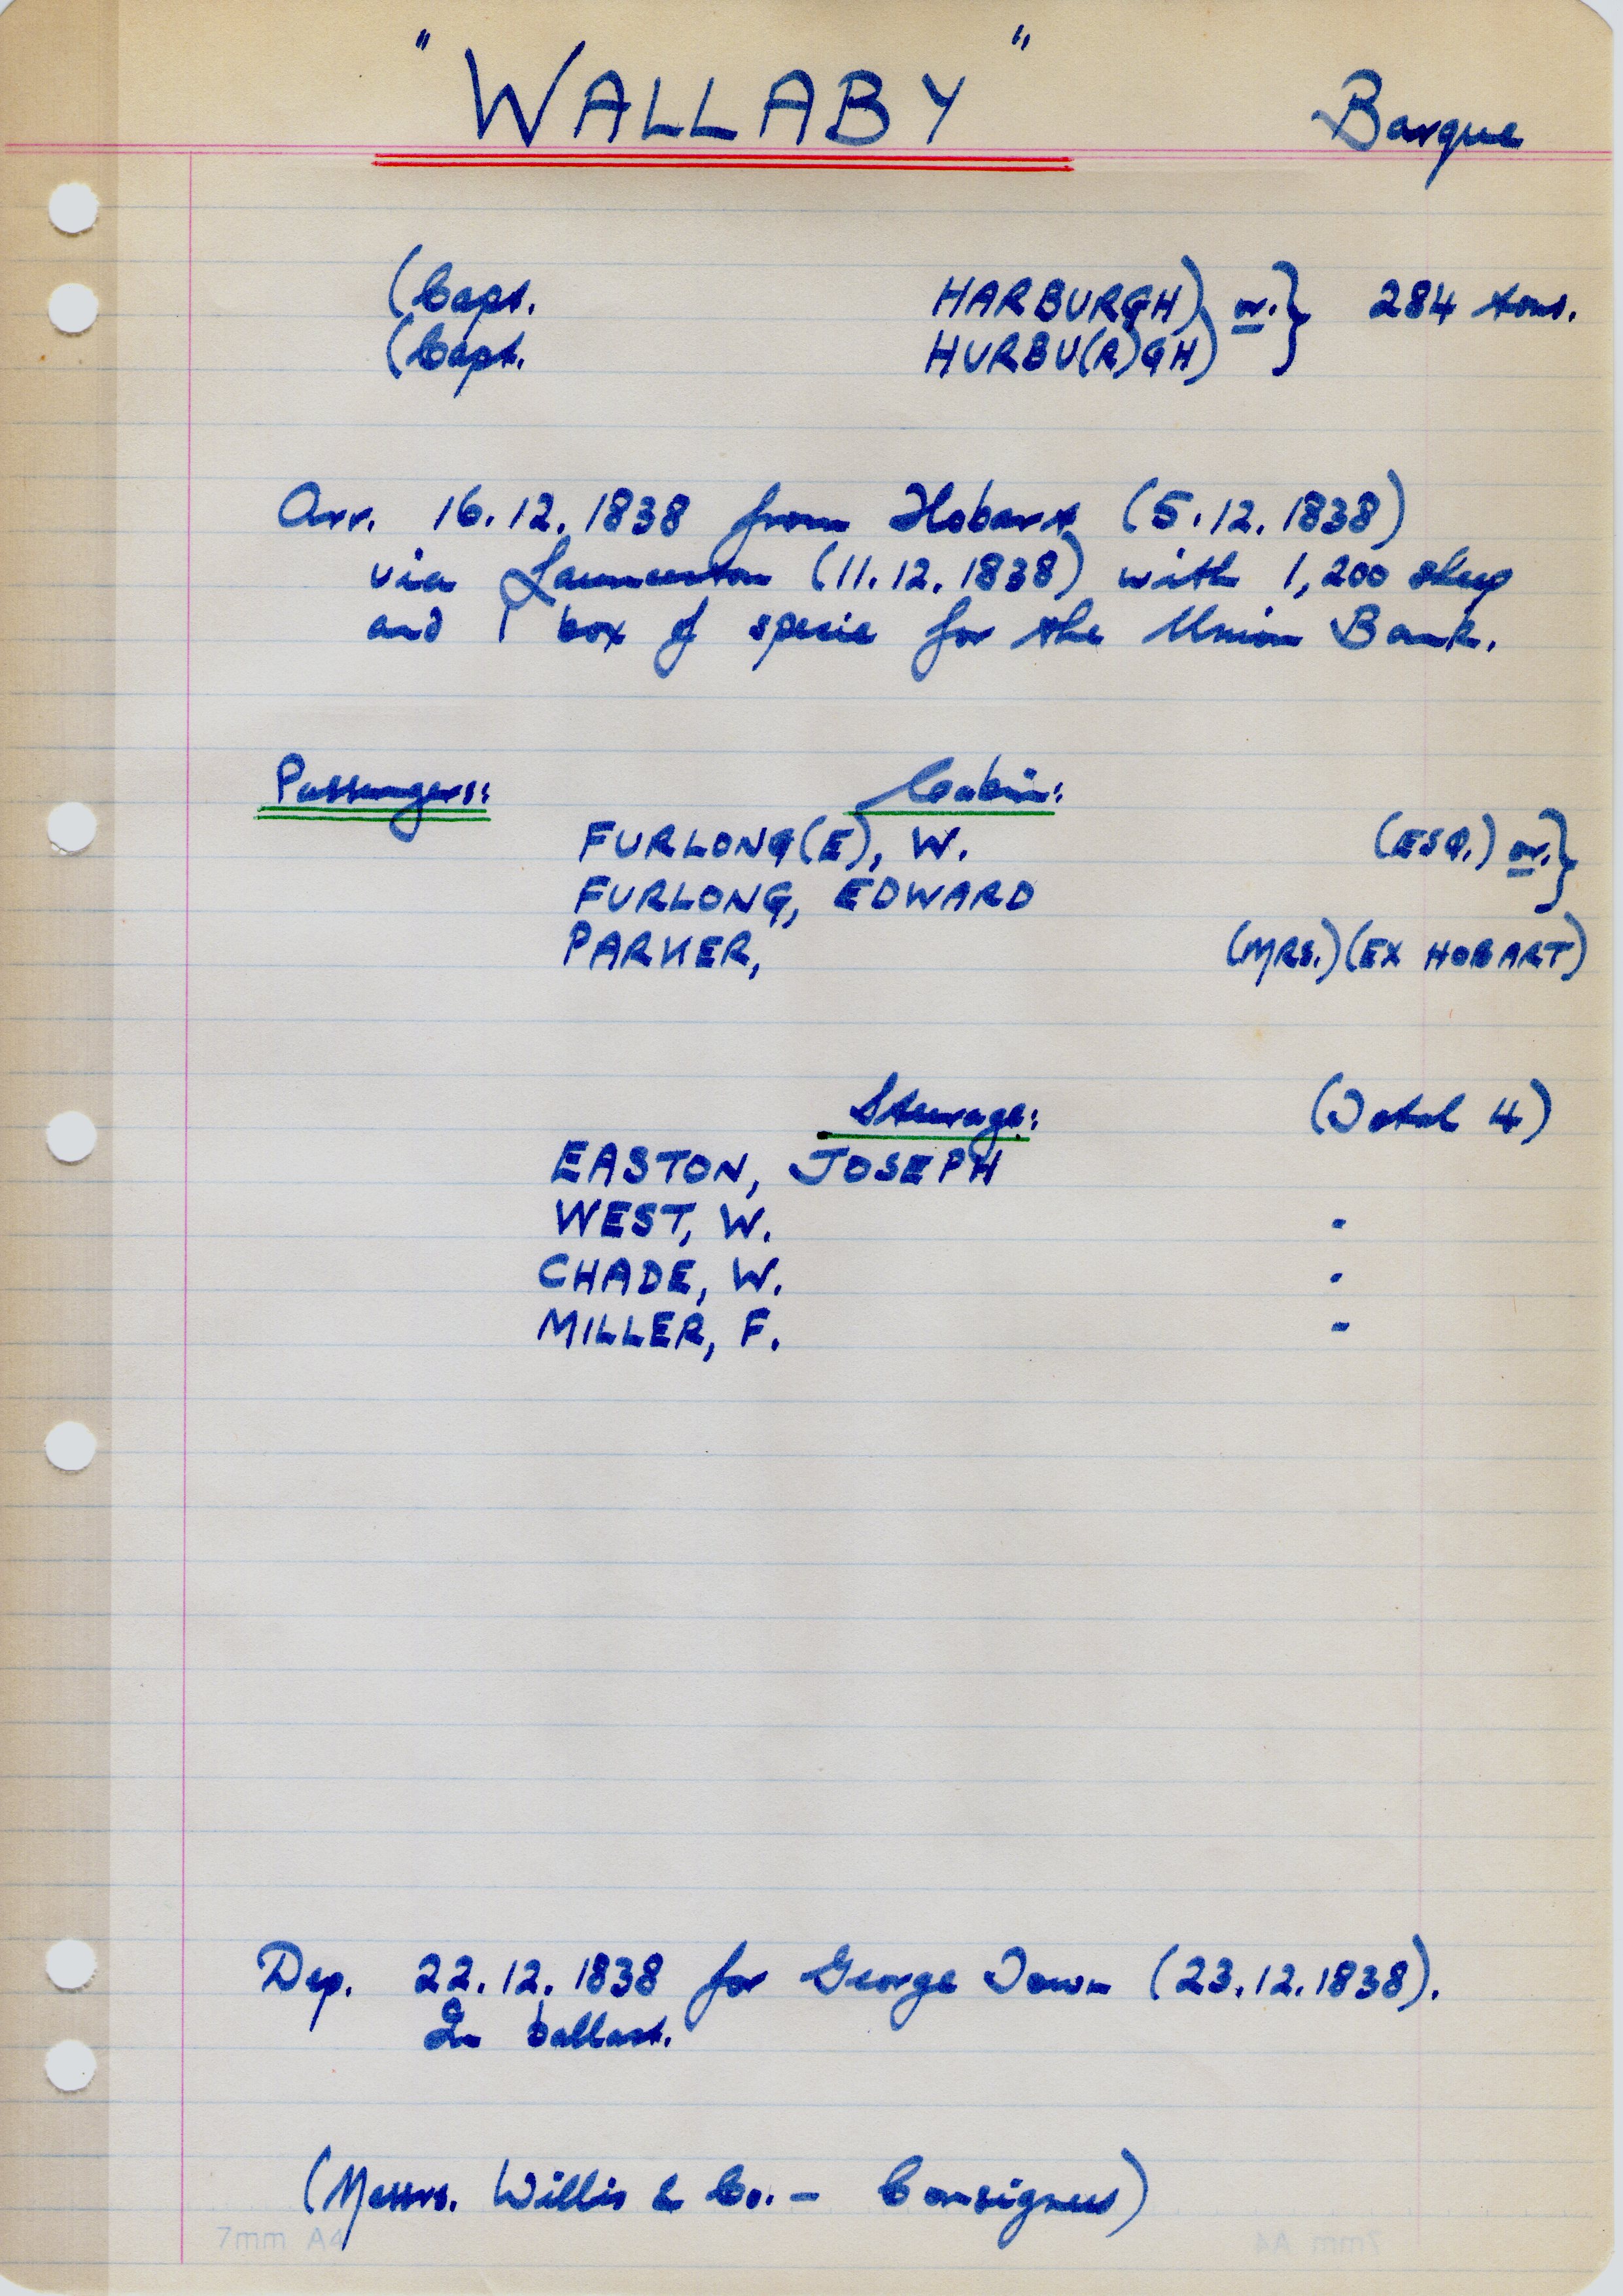 "WALLABY" Barque
(Capt. HARBURGH) or.} 284 tons.
(Capt. HURBU(R)GH)
Arr. 16.12.1838 from Hobart (5.12.1838)
via Launceston (11.12.1838) with 1,200 sheep
and 1 box of specie for the Union Bank.
Passengers: Cabin:
FURLONG(E), W. (ESQ.) or.}
FURLONG, EDWARD
PARKER, (MRS.) (EX HOBART)
Steerage: (Total 4)
EASTON, JOSEPH
WEST, W. -
CHADE, W. -
MILLER, F. -
Dep. 22.12.1838 for George Town (23.12.1838).
In ballast.
(Messrs. Willis & Co. - Consignees)
7mm A4 7mm A4